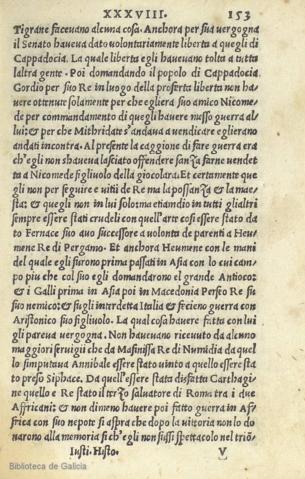 XXXVIII. 153
Tigrane facevano alcuna cosa. Anchora per sua vergogna
il Senato haveva dato volontariamente liberta a quegli di
Cappadocia. La quale liberta egli havevano tolta a tutta
laltra gente. Poi domandando il popolo di Cappadocia
Gordio per suo Re in luogo della proferta liberta non ha=
vere ottenute solamente per che egli era suo amico Nicome=
de per commandamento di quegli havere mosso guerra al
lui: & per che Mithridate s'andava a vendicare eglierano
andati incontra. Al presente la caggione di fare guerra era
ch'egli non s haveva lasciato offendere sanza farne vendet
ta a Nicomede figliuolo della giocolara: Et certamente que
gli non per seguire e vitii de Re ma la possanza & la mae=
sta: & quegli non in lui solo: ma etiamdio in tutti gli altri
sempre essere stati crudeli con quell'arte cosi essere stato da
to Fernace suo avo successore a volonta de parenti a Heu=
mene Re di Pergamo. Et anchora Heumene con le mani
del quale egli furono prima passati in Asia con lo cui cam=
po piu che col suo egli domandarono el grande Antioco:
& i Galli prima in Asia poi in Macedonia Perseo Re su
suo nemico: & sugli interdetta Italia & fecieno guerra con
Aristonico suo figliuolo. La qual cosa havere fatta con lui
gli pareva vergogna. Non havevano ricevuto da alcuno
maggiori servigii che da Masinissa Re di Numidia da quel
lo s'imputava Annibale essere stato vinto a quello essere sta
to preso Siphace. Da quell'essere stata disfatta Carthagi=
ne quello e Re stato il terzo salvatore di Roma tra i due
Affricani: & non dimeno havere poi fatto guerra in Af=
frica con suo nepote si aspra che dopo la vittoria non lo do
narono alla memoria si ch'egli non fussi spettacolo nel triõ=
Iusti. Histo. V
Biblioteca de Galicia